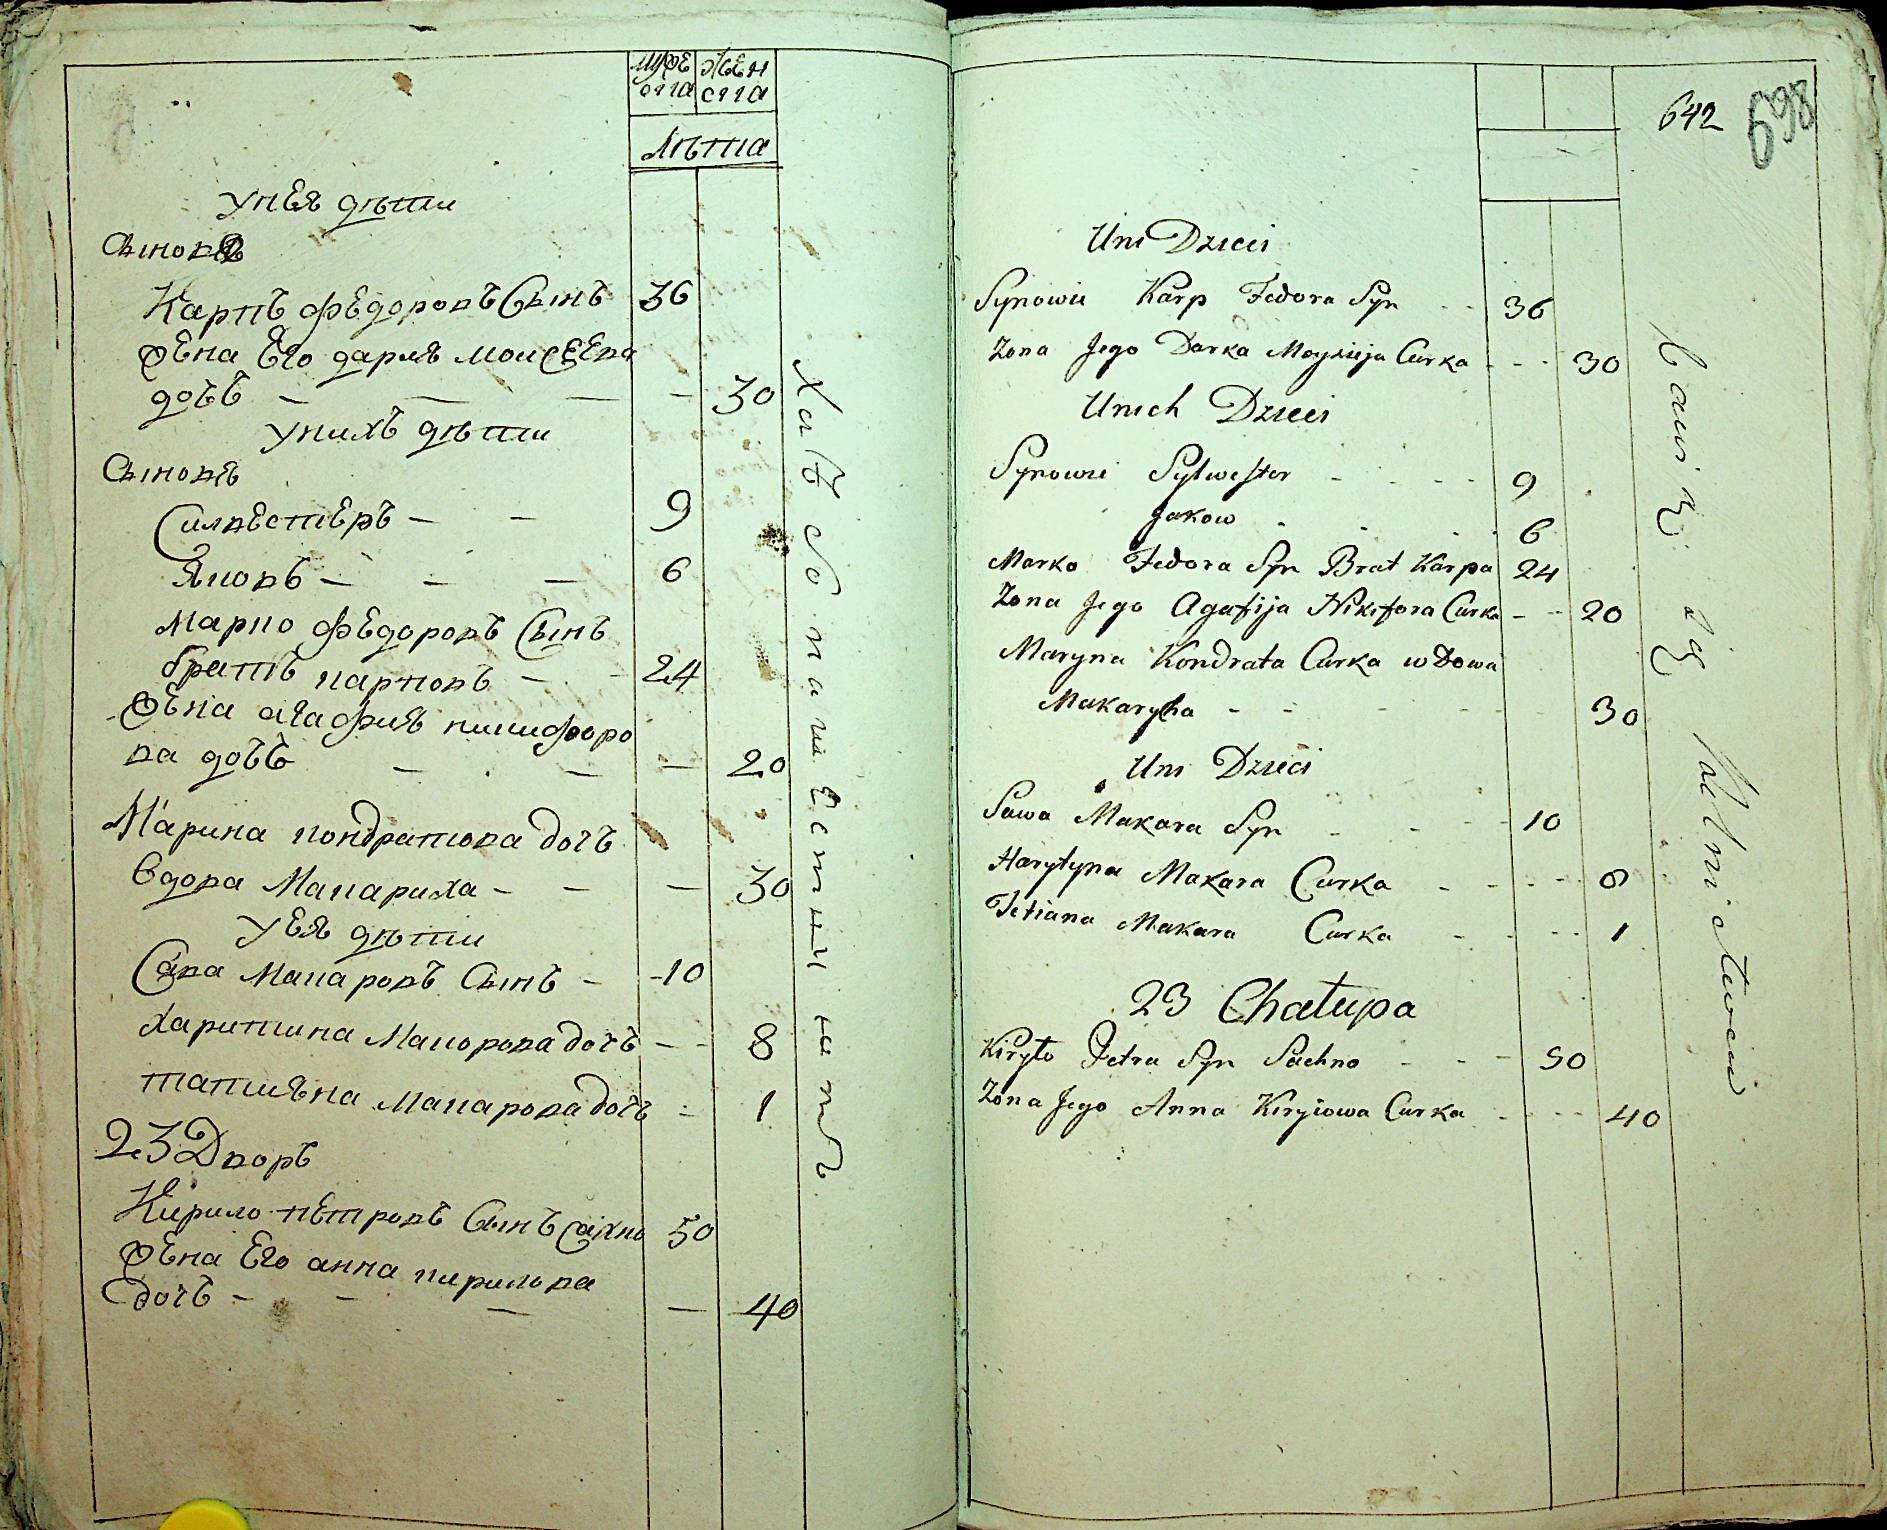 муже жен
ска ска
лѣта
У нея дѣти
Сыновѣ
Карпъ Федоровъ Сынъ 36
Жена Его дария моисеева
дочь — — — — 30
У нихъ дѣти
Сыновя
Силвестеръ — — 9
Яковъ — — — 6
Марко Федоровъ Сынъ
братъ карповъ — - 24
Жена агафия никифоро
ва дочь — — — 20
Марина кондратова дочъ
вдова Макариха — — — 30
У Ея дѣти
Сава Макаровъ Сынъ — -10
Харитина Макорова дочъ — - 8
татияна Макарова дочъ - 1
23 Дворъ
Кирило петровъ Сынъ Сахно 50
Жена Его анна кирилова
дочъ — - — — 40
Хлѣбопашественнитъ
642
698
Uni Dzieci
Synowie Karp Fedora Syn - - 36
Zona Jego Darka Moysieja Curka - - - 30
Unich Dzieci
Synowie Sylwester - - - - 9
Jakow - - - - 6
Marko Fedora Syn Brat Karpa 24
Zona Jego Agafija Nikifora Curka - - - 20
Maryna Kondrata Curka wdowa
Makarycha - - - - - 30
Uni Dzieci
Sawa Makara Syn - - - 10
Harytyna Makara Curka - - - - 8
Tetiana Makara Curka - - - - 1
23 Chałupa
Kiryło Petra Syn Sachno - - - 50
Zona Jego Anna Kiryłowa Curka - - - - 40